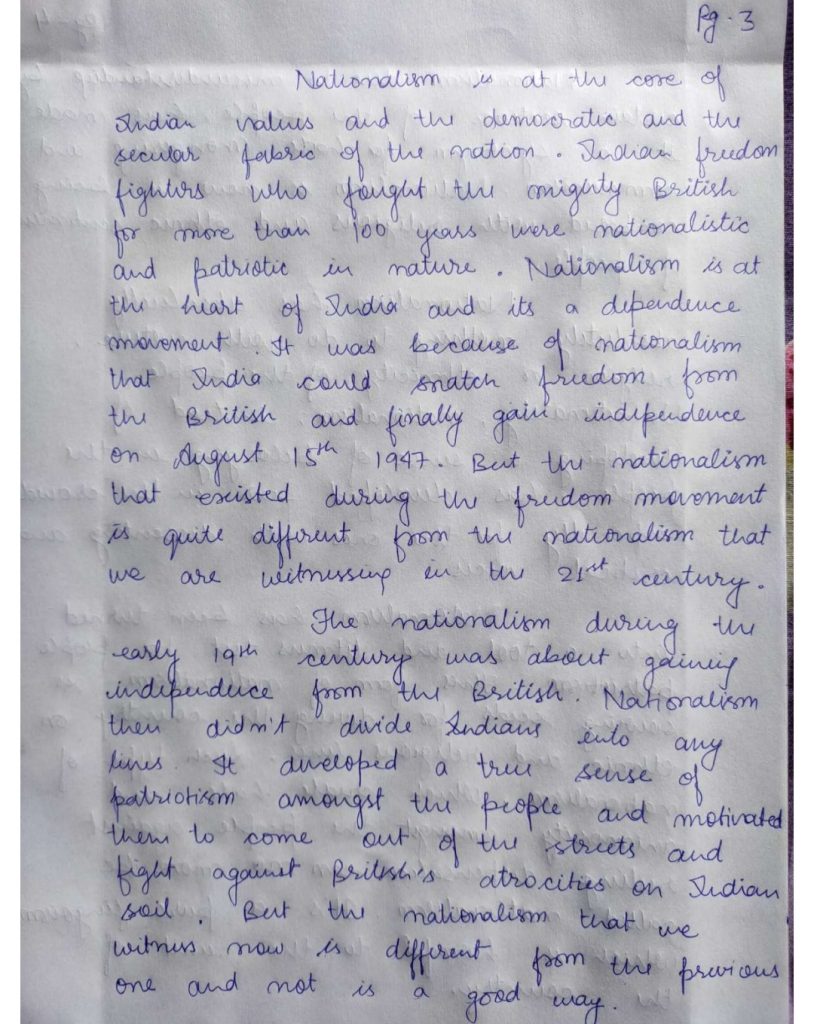 Pg. 3
Nationalism is at the core of
Indian values and the democratic and the
secular fabric of the nation. Indian freedom
fighters who fought the mighty British
for more than 100 years were nationalistic
and patriotic in nature. Nationalism is at
the heart of India and its a dependence
movement. It was because of nationalism
that India could snatch freedom from
the British and finally gain independence
on August 15th 1947. But the nationalism
that existed during the freedom movement
is quite different from the nationalism that
we are witnessing in the 21st century.
The nationalism during the
early 19th century was about gaining
independence from the British. Nationalism
then didn't divide Indians into any
lines. It developed a true sense of
patriotism amongst the people and motivated
them to come out of the streets and
fight against British's atrocities on Indian
soil. But the nationalism that we
witness now is different from the previous
one and not is a good way.